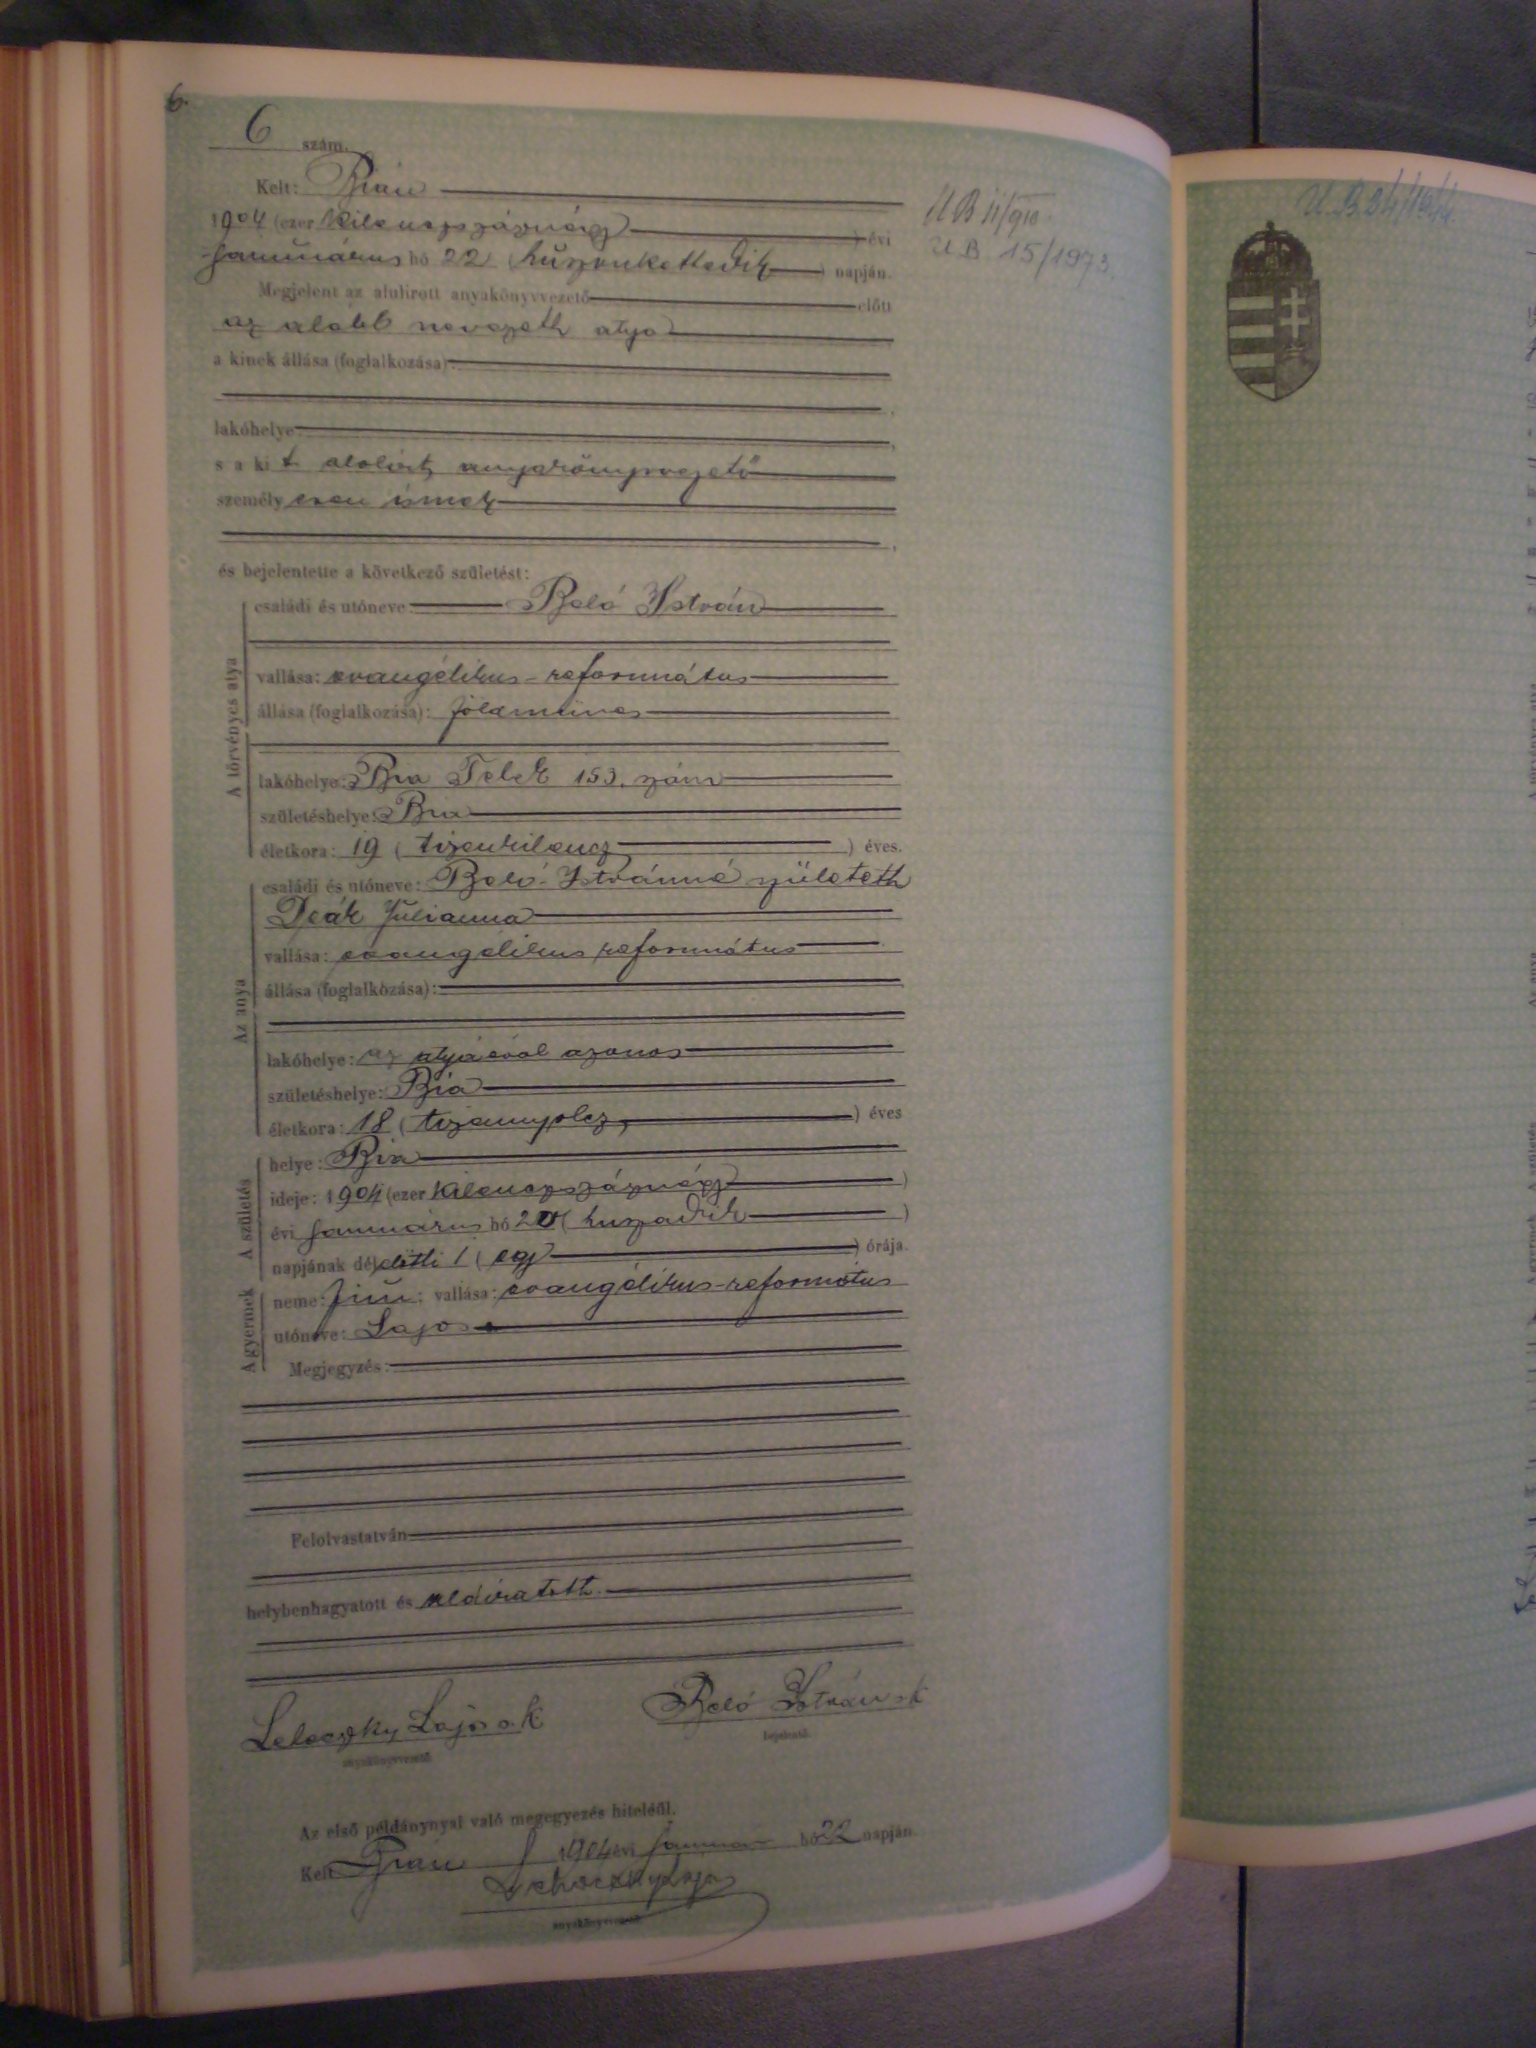 6.
6 szám.
Kelt: Bián
1904 (ezer kilenczszáznégy) évi
Január hó 22 (huszonkettedik) napján.
Megjelent az alulirott anyakönyvvezető előtt
az alább nevezett atya
a kinek állása (foglalkozása):
lakóhelye
s a kit alolirt anyakönyvvezető
személyesen ismer
és bejelentette a következő születést:
A törvényes atya
családi és utóneve: Beló István
vallása: evangélikus-református
állása (foglalkozása): földmives
lakóhelye: Bia Telek 153. szám
születéshelye: Bia
életkora: 19 (tizenkilencz) éves.
Az anya
családi és utóneve: Beló Istvánné született
Deák Julianna
vallása: evangélikus református
állása (foglalkozása):
lakóhelye: az atyáéval azonos
születéshelye: Bia
életkora: 18 (tizennyolcz) éves
A születés
helye: Bia
ideje: 1904 (ezer kilenczszáznégy)
évi Január hó 20 (huszadik)
napjának délelőtti 1 (egy) órája.
A gyermek
neme: fiu; vallása: evangélikus-református
utóneve: Lajos
Megjegyzés:
Felolvastatván
helybenhagyatott és aláiratott.
Lajos s. k. Beló István s. k.
anyakönyvvezető bejelentő
Az első példánynyal való megegyezés hiteléül.
Kelt Bián 1904 évi Január hó 22 napján.
Lajos
anyakönyvvezető
U B 11/910.
U.B. 15/1973.
U.B.